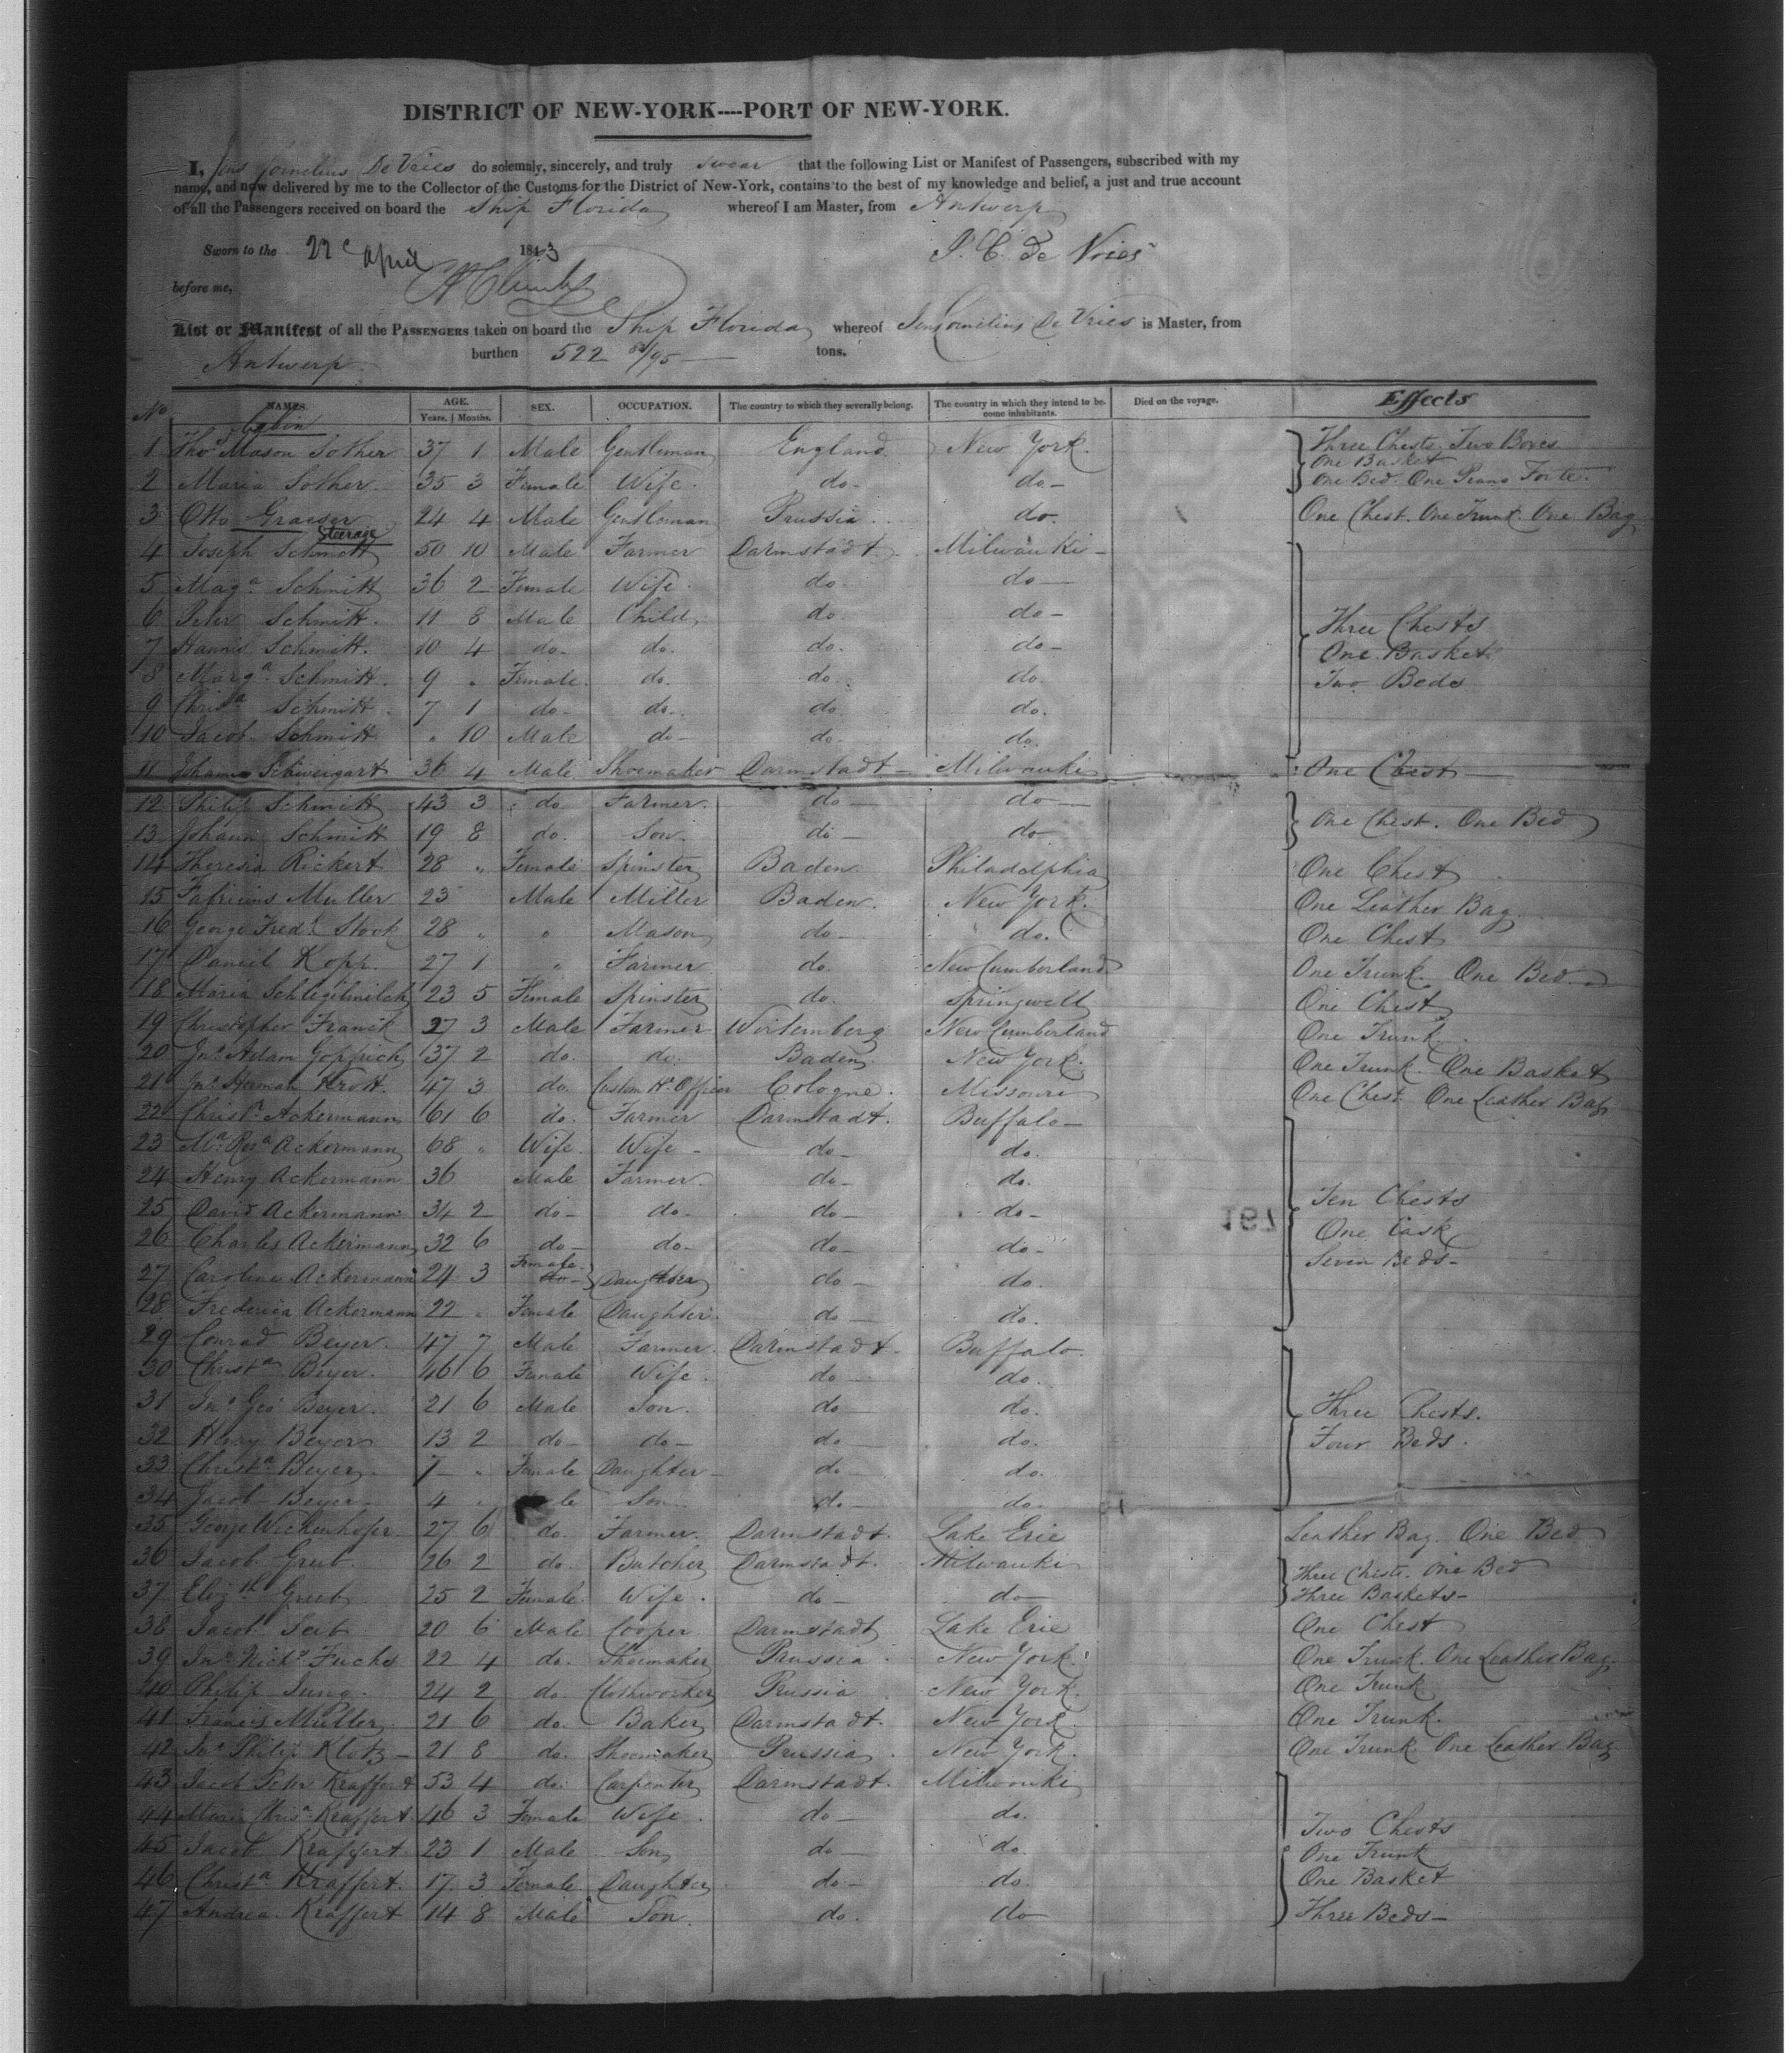 DISTRICT OF NEW-YORK----PORT OF NEW-YORK.
I, Jens Cornelius De Vries do solemnly, sincerely, and truly swear that the following List or Manifest of Passengers, subscribed with my
name, and now delivered by me to the Collector of the Customs for the District of New-York, contains to the best of my knowledge and belief, a just and true account
of all the Passengers received on board the Ship Florida whereof I am Master, from Antwerp
Sworn to the 22 April 1843 J. C. De Vries
before me,
List or Manifest of all the PASSENGERS taken on board the Ship Florida whereof Jens Cornelius De Vries is Master, from
Antwerp burthen 522 /95 tons.
No NAMES. AGE. Years. Months. SEX. OCCUPATION. The country to which they severally belong. The country in which they intend to become inhabitants. Died on the voyage. Effects
Cabin
1 Thos Mason Sother 37 1 Male Gentleman England New York. Three Chests Two Boxes
One Basket
2 Maria Sother. 35 3 Female Wife. do- do- One Bed. One Piano Forte.
3 Otto Graeser 24 4 Male Gentleman Prussia do. One Chest. One Trunk. One Bag
Steerage
4 Joseph Schmitt 50 10 Male Farmer Darmstadt. Milwauki-
5 Maga Schmitt 36 2 Female Wife. do. do-
6 Peter Schmitt. 11 8 Male Child, do. do- Three Chests
7 Hannis Schmitt. 10 4 do- do. do. do- One Basket
8 Marga Schmitt. 9 " Female. do. do. do. Two Beds
9 Chrisa Schmitt 7 1 do- do. do. do.
10 Jacob Schmitt " 10 Male do- do. do.
11 Johann Schweigart 36 4 Male Shoemaker Darmstadt- Milwauki One Chest-
12 Philip Schmitt 43 3 do Farmer. do- do-
13 Johann Schmitt 19 8 do. Son. do- do- One Chest. One Bed
14 Theresia Rickert 28 " Female Spinster Baden Philadelphia One Chest
15 Fabricius Muller 23 Male Miller Baden. New York. One Leather Bag.
16 George Fredk Stock 28 " " Mason do- do. One Chest
17 Daniel Kopp. 27 1 " Farmer do. New Cumberland One Trunk. One Bed.
18 Maria Schlegilmilch 23 5 Female Spinster do. Springwell One Chest
19 Christopher Franck 27 3 Male Farmer Wirtemberg New Cumberland One Trunk.
20 Jno Adam Goppich 37 2 do. do. Baden New York. One Trunk. One Basket
21 Jno Herman Krott. 47 3 do. Custom Hs Officer Cologne. Missouri One Chest. One Leather Bag
22 Christn Ackermann 61 6 do. Farmer Darmstadt. Buffalo-
23 Ma Rosa Ackermann 68 " Wife Wife- do- do.
24 Henry Ackermann 36 Male Farmer. do- do.
25 David Ackermann 34 2 do- do- do- do- Ten Chests
26 Charles Ackermann 32 6 do- do- do- do- One Cask
Female
27 Caroline Ackermann 24 3 do- Daughter do- do. Seven Beds-
28 Frederica Ackermann 22 " Female Daughter do- do.
29 Conrad Beyer. 47 7 Male Farmer. Darmstadt. Buffalo.
30 Christa Beyer. 46 6 Female Wife. do- do.
31 Jno Geo Beyer. 21 6 Male Son. do- do. Three Chests.
32 Henry Beyer 13 2 do- do- do- do. Four Beds.
33 Christa Beyer. 7- " Female Daughter- do- do.
34 Jacob Beyer- 4 " Male Son. do- do.
35 George Wickenhofer. 27 6 do. Farmer. Darmstadt. Lake Erie Leather Bag. One Bed
36 Jacob Greb. 26 2 do. Butcher Darmstadt. Milwauki Three Chests. One Bed
37 Elizth Greb 25 2 Female. Wife. do- do- Three Baskets-
38 Jacob Seib 20 6 Male Cooper Darmstadt Lake Erie One Chest
39 Jno Nichs Fuchs 22 4 do. Shoemaker Prussia New York. One Trunk. One Leather Bag.
40 Philip Jung. 24 2 do. Clothworker Prussia New York. One Trunk
41 Francis Muller 21 6 do. Baker Darmstadt. New York. One Trunk.
42 Jno Philip Klotz- 21 8 do. Shoemaker Prussia. New York. One Trunk. One Leather Bag
43 Jacob Peter Kraffert 53 4 do. Carpenter Darmstadt. Milwauki
44 Maria Chrisa Kraffert 46 3 Female Wife. do- do. Two Chests
45 Jacob Kraffert. 23 1 Male Son do- do. One Trunk
46 Christa Kraffert. 17 3 Female Daughter do- do. One Basket
47 Andrea Kraffert 14 8 Male Son do. do Three Beds-
197